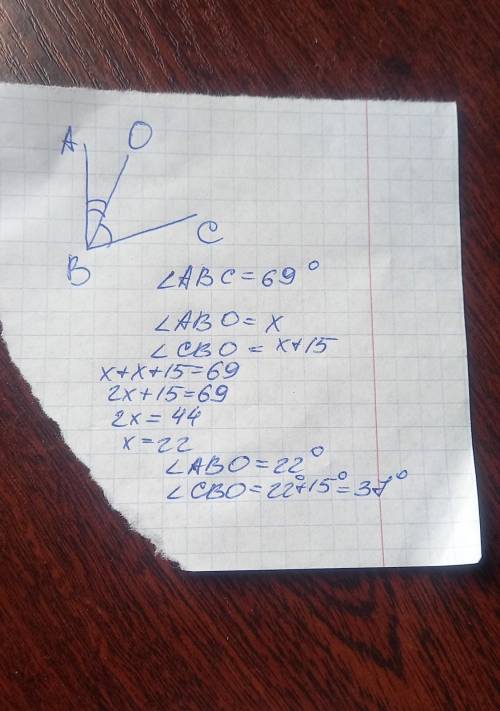 A O
C
B
∠ABC = 69°
∠ABO = x
∠CBO = x+15
x+x+15=69
2x+15=69
2x = 44
x = 22
∠ABO = 22°
∠CBO = 22°+15°= 37°